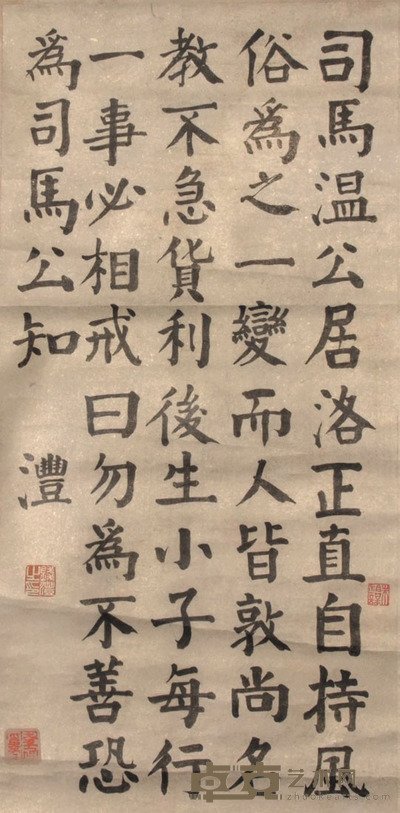 司馬温公居洛正直自持風
俗爲之一變而人皆敦尚名
教不急貨利後生小子每行
一事必相戒曰勿爲不善恐
爲司馬公知
灃